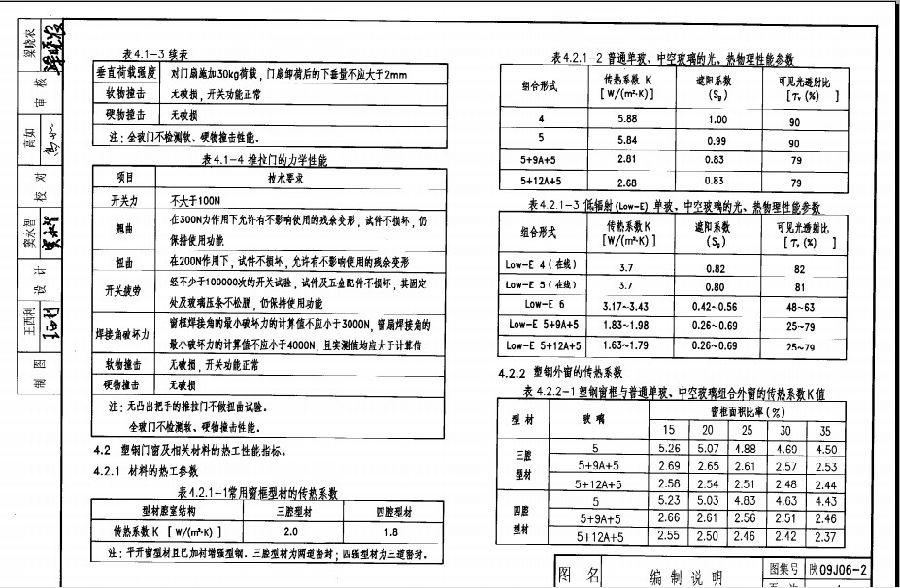 表4.1-3 续表
垂直荷载强度 对门扇施加30kg荷载，门扇卸荷后的下垂量不应大于2mm
软物撞击 无破损，开关功能正常
硬物撞击 无破损
注：全玻门不检测软、硬物撞击性能。
表4.1-4 推拉门的力学性能
项目 技术要求
开关力 不大于100N
翘曲 在300N力作用下允许有不影响使用的残余变形，试件不损坏，仍
保持使用功能
扭曲 在200N作用下，试件不损坏，允许有不影响使用的残余变形
开关疲劳 经不少于100000次的开关试验，试件及五金配件不损坏，其固定
处及玻璃压条不松脱，仍保持使用功能
焊接角破坏力 窗框焊接角的最小破坏力的计算值不应小于3000N，窗扇焊接角的
最小破坏力的计算值不应小于4000N，且实测值均应大于计算值
软物撞击 无破损，开关功能正常
硬物撞击 无破损
注：无凸出把手的推拉门不做扭曲试验。
全玻门不检测软、硬物撞击性能。
4.2 塑钢门窗及相关材料的热工性能指标。
4.2.1 材料的热工参数
表4.2.1-1常用窗框型材的传热系数
型材腔室结构 三腔型材 四腔型材
传热系数K [ W/(m²·K) ] 2.0 1.8
注：平开窗型材且已加衬增强型钢。三腔型材为两道密封；四腔型材为三道密封。
表4.2.1-2 普通单玻、中空玻璃的光、热物理性能参数
组合形式 传热系数 K [ W/(m²·K)] 遮阳系数 (Sg) 可见光透射比 [ τv (%) ]
4 5.88 1.00 90
5 5.84 0.99 90
5+9A+5 2.81 0.83 79
5+12A+5 2.68 0.83 79
表4.2.1-3 低辐射(Low-E) 单玻、中空玻璃的光、热物理性能参数
组合形式 传热系数 K [ W/(m²·K) ] 遮阳系数 (Sg) 可见光透射比 [ τv (%) ]
Low-E 4 (在线) 3.7 0.82 82
Low-E 5 (在线) 3.7 0.80 81
Low-E 6 3.17~3.43 0.42~0.56 48~63
Low-E 5+9A+5 1.83~1.98 0.26~0.69 25~79
Low-E 5+12A+5 1.63~1.79 0.26~0.69 25~79
4.2.2 塑钢外窗的传热系数
表 4.2.2-1塑钢窗框与普通单玻、中空玻璃组合外窗的传热系数K值
型材 玻璃 窗框面积比率 (%)
15 20 25 30 35
三腔型材 5 5.26 5.07 4.88 4.69 4.50
5+9A+5 2.69 2.65 2.61 2.57 2.53
5+12A+5 2.58 2.54 2.51 2.48 2.44
四腔型材 5 5.23 5.03 4.83 4.63 4.43
5+9A+5 2.66 2.61 2.56 2.51 2.46
5+12A+5 2.55 2.50 2.46 2.42 2.37
图名 编制说明 图集号 陕09J06-2
梁晓农
审核
高如
校对
窦永智
设计
王西利
制图